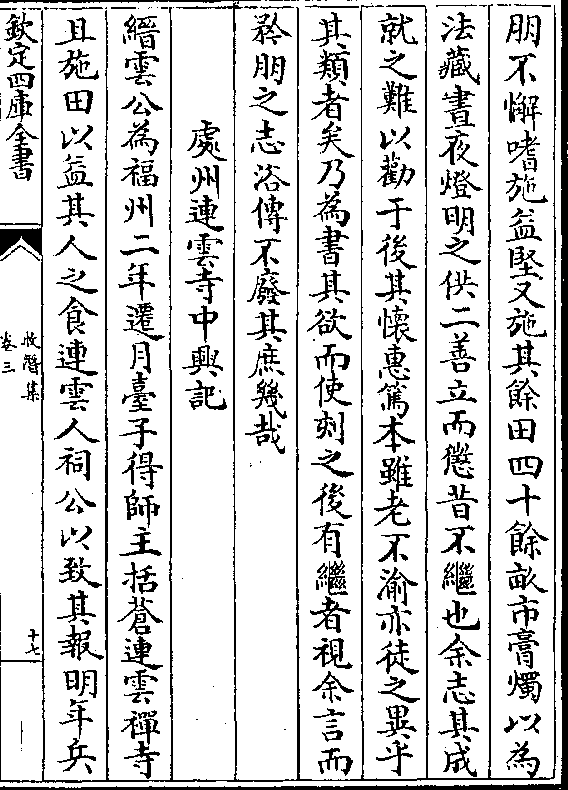 朋不懈嗜施益堅又施其餘田四十餘畝市膏燭以為
法藏晝夜燈明之供二善立而懲昔不繼也余志其成
就之難以勸于後其懐惠篤本雖老不渝亦徒之異乎
其類者矣乃為書其欲而使刻之後有繼者視余言而
矜朋之志浴傳不廢其庶幾哉
處州連雲寺中興記
縉雲公為福州二年遷月臺子得師主括蒼連雲禪寺
且施田以益其人之食連雲人祠公以致其報明年兵
欽定四庫全書
牧潛集
卷三
十七